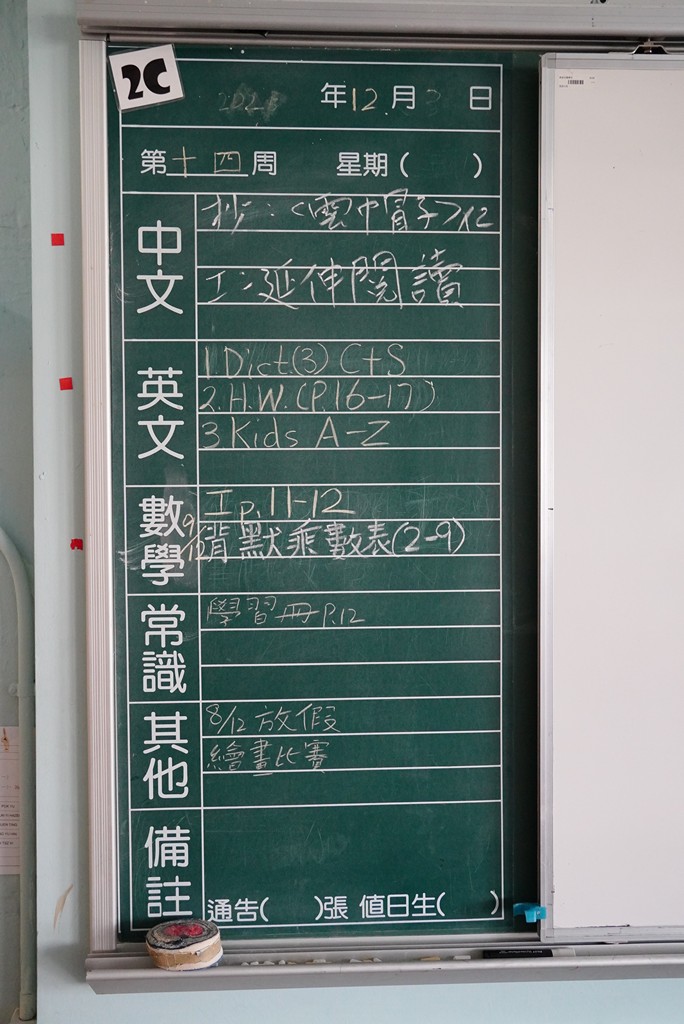 2C
2021 年 12 月 日
第 十四 周 星期 ( )
中文
抄:<雲中冒子>x2
工:延伸閱讀
英文
1.Dict.(3) C+S
2.H.W.(P.16-17)
3.Kids A-Z
數學
工p.11-12
9/12 背默乘數表(2-9)
常識
學習冊P.12
其他
8/12 放假
繪畫比賽
備註
通告( )張 值日生( )